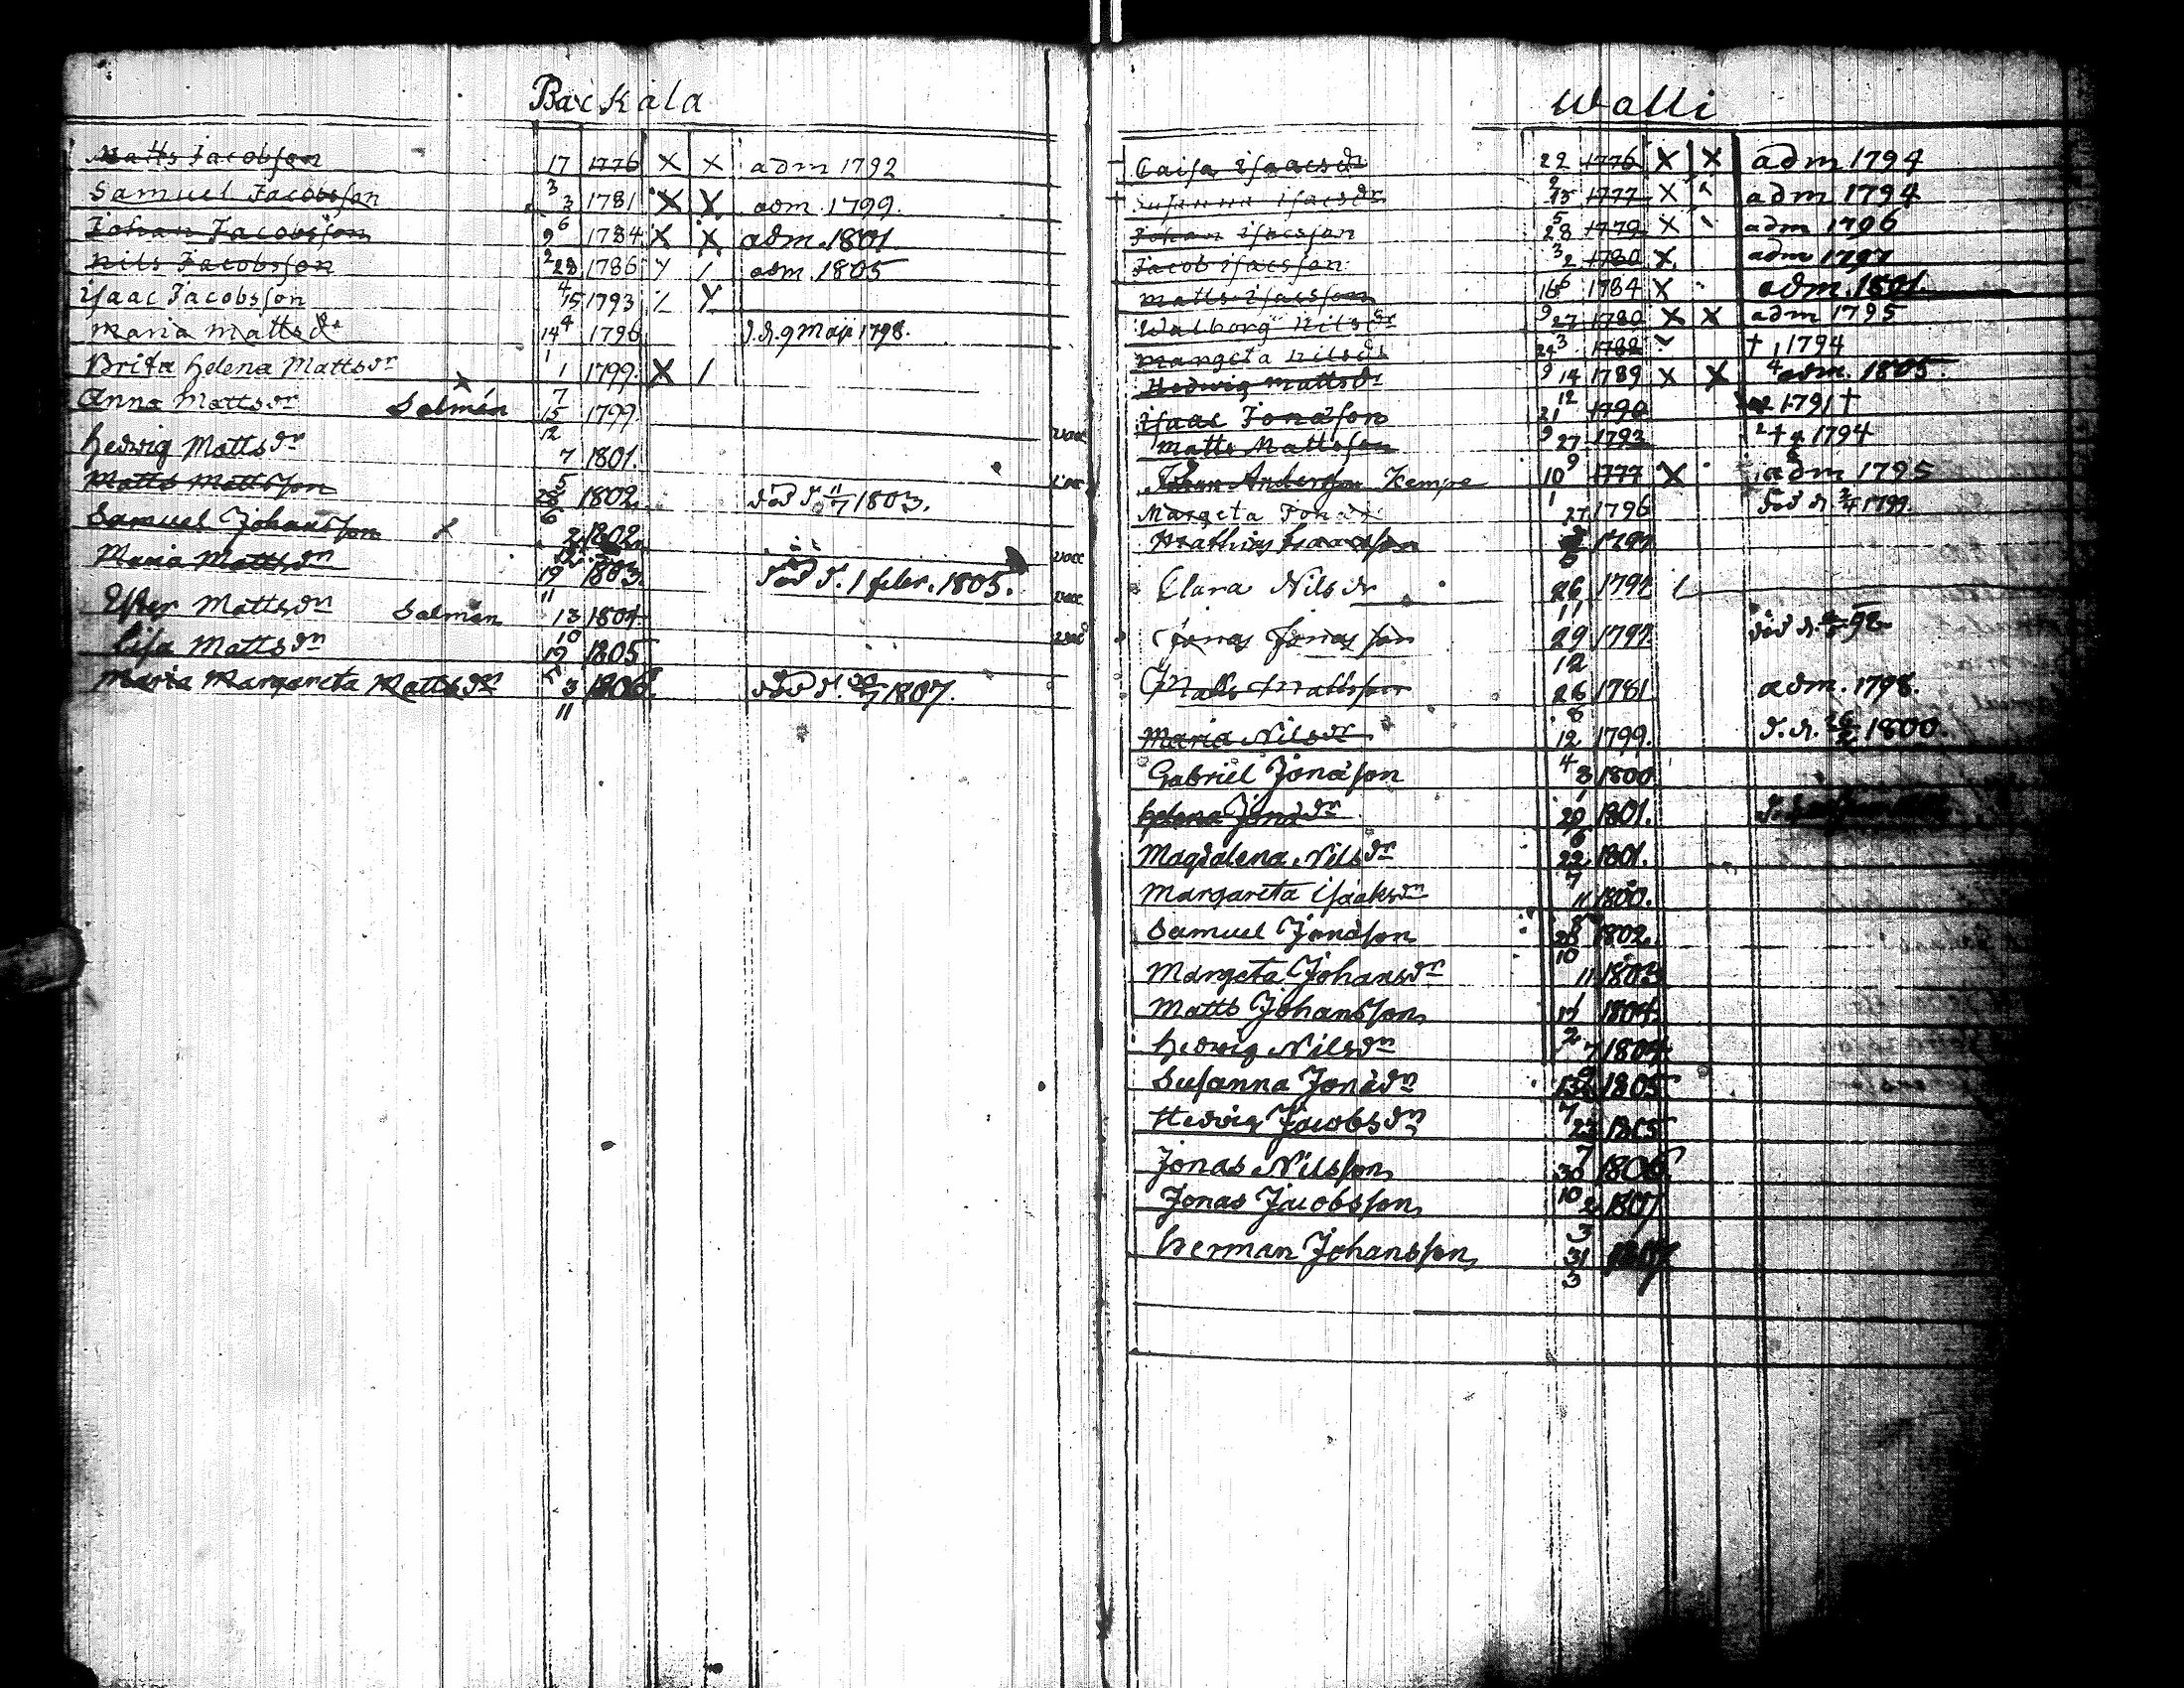 Backala
Matts Jacobsson 17 1776 X X adm 1792
Samuel Jacobsson 3 3 1781 X X adm. 1799.
Johan Jacobsson 6 9 1784 X X adm. 1801
Nils Jacobsson 2 28 1786 adm. 1805
Isaac Jacobsson 4 15 1793
Maria Matts dr 14 4 1796 d. d. 9 Maji 1798.
Brita Helena Mattsdr 1 1 1799. X /
Anna Mattsdr Salmén 7 15 1799. 12
Hedwig Mattsdr 7 1801. 5
Matts Mattsson 1802. död d. 11/7 1803.
Samuel Johansson 2 1802.
Maria Mattsdr 19 1803 11 död d. 1 febr. 1805.
Ester Mattsdr Salmén 13 1804 10
Lisa Mattsdr 19 1805
Maria Margareta Mattsdr 3 1806. 11 död d. 1807.
Walli
Caisa Isaacsdr 22 1776 X X adm 1794
Susanna Isacsdr 1777 X adm 1794
Johan Isacsson 5 28 1779 X adm 1796
Jacob Isacsson 3 2 1780 X adm 1797
Matts Isacsson 16 6 1784 X adm. 1801.
Walborg Nilsdr 9 27 1780 X X adm 1795
Margeta Nilsdr 24 3 1788 † 1794
Hedwig Mattsdr 9 14 1789 X X adm. 1805.
Isaac Jonasson 12 21 1790 1791 †
Matts Mattsson 9 27 1793 1794
Johan Andersson Kempe 10 9 1777 X adm 1795
Margeta 1 27 1796 död d. 1799.
Mathias 1797
Clara Nilsdr 26 1797 11
Jonas Jonasson 29 1797. 12 död d.
Matts Mattsson 26 1781. 8 adm. 1798.
Maria Nilsdr 12 1799. 4 d. d. 26/2 1800.
Gabriel Jonasson 3 1800 1
Helena Jonasdr 29 1801. 6
Magdalena Nilsdr 22 1801. 7
Margareta Isaaksdr 11 1800.
Samuel Jonasson 1802. 10
Margeta Johansdr 11 1803 1
Matts Johansson 17 1804. 2
Hedwig Nilsdr 7 1804
Susanna Jonasdr 1805 7
Hedvig Jacobsdr 23 1805 7
Jonas Nilsson 30 1806 10
Jonas Jacobsson 2 1807 3
Herman Johansson 31 1807 3